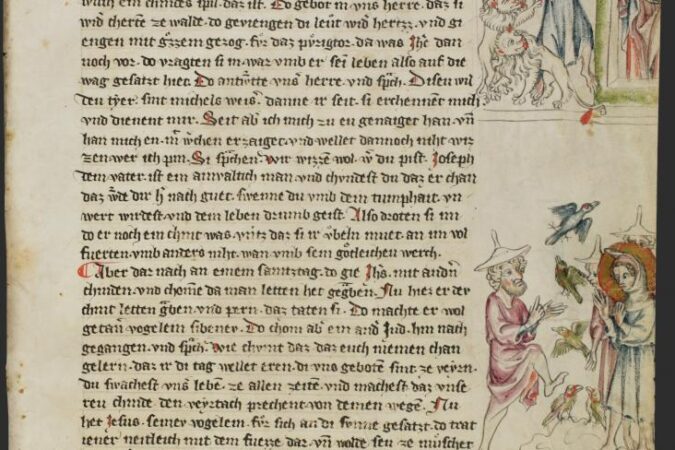 durch ein chindes spil daz ist. Do gebot in uns herre. daz si
wid cherten ze walde. do geviengen di leut wid hertzz. und gi
engen mit gͦzzem gezog. fur daz purigtor. da was Jh̄c dan
noch vor. do vragten si in. war umb er sein leben also auf die
wag gesatzt hiet. Do antwͦtt uns herre. und sprͣch. Disen wil
den tyer. sint michels weiser danne ir seit. si erchennent mich
und dienent mir. Seit ab ich mich zu eu genaiget han. vnͫ
han mich en. in mͥschen erzaiget. und wellet dannoch niht wiz
zen wer ich pin. Si sprͣchen. wir wizzen wol. wͤ du pist. Joseph
dein vater. ist ein anvaltich man. und chundest du daz er chan
daz wͤde dir hͥ nach guet. swenne du umb dein tumphait. un
wert wirdest. und dein leben drumb geist. Also droten si im
do er noch ein chint was. und tz daz si ir ubeln muet. an im vol
fuerten. umb anders niht. wan umb sein gotleichen werch.
Aber dar nach an einem samtztag. do gie Jh̄s. mit andn̄
chinden. und chome da man letten het gegͣben. Nu hier er dey
chint letten gͣben. und pern. daz taten si. Do machte er wol
getan̄ vogelein sibeney. Do chom ab ein and Jud. hin nach
gegangen. und sprͣch. wie chumt daz daz euch niemen chan
gelern. daz ir di tag wellet eren. di uns geboten sint ze veyrn.
du swachest uns lebn̄. ze allen zeiten. und machest daz unse
reu chinde den veyrtach prechent von deinen wegen. Nu
het Jesus. seinev vogelein. fur sich an di sunne gesatzt. do trat
iener neitleich mit dem fuezze dar. vnͫ wolde seu ze muscher